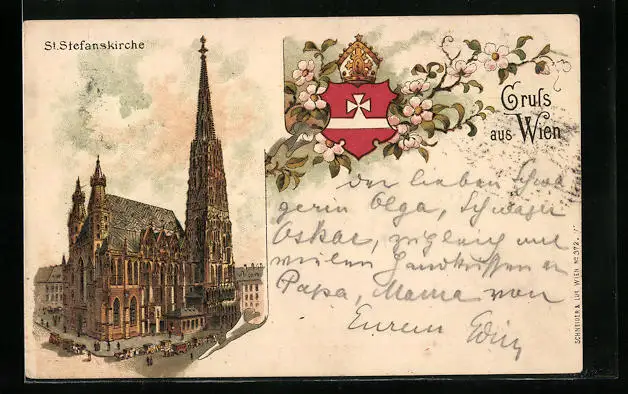 St. Stefanskirche
Gruss
aus Wien
der lieben Schwä
gerin Olga, Schwager
Oskar, zugleich mit
vielen Handküssen an
Papa, Mama von
Eurem
SCHNEIDER & LUX WIEN No 372